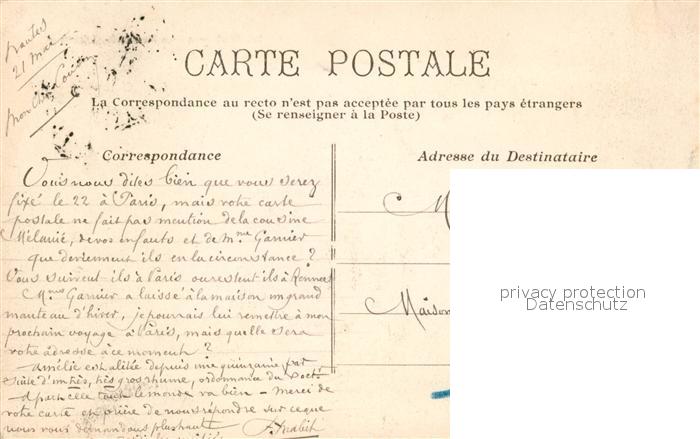 Nantes
21 Mai
Mon Cher Louis
CARTE POSTALE
La Correspondance au recto n'est pas acceptée par tous les pays étrangers
(Se renseigner à la Poste)
Correspondance
Adresse du Destinataire
Vous nous dites bien que vous serez
fixé le 22 à Paris, mais votre carte
postale ne fait pas mention de la cousine
Mélanie, de vos enfants et de Mme Garnier
que deviennent ils en la circonstance ?
Vous suivent ils à Paris ou restent ils à Rennes
Mme Garnier a laissé à la maison un grand
manteau d'hiver, je pourrais lui remettre à mon
prochain voyage à Paris, mais quelle sera
votre adresse à ce moment ?
Amélie est alitée depuis une quinzaine par
suite d'un très, très gros rhume, ordonnance du Doct
à part cela tout le monde va bien - merci de
votre carte et prière de nous répondre sur ce que
nous vous demandons plus haut
M
Maison
privacy protection
Datenschutz